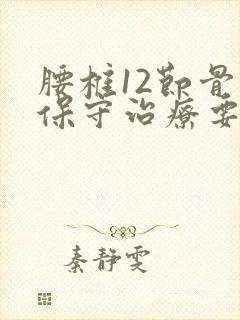 腰椎12節骨
保守治療要
秦静雯